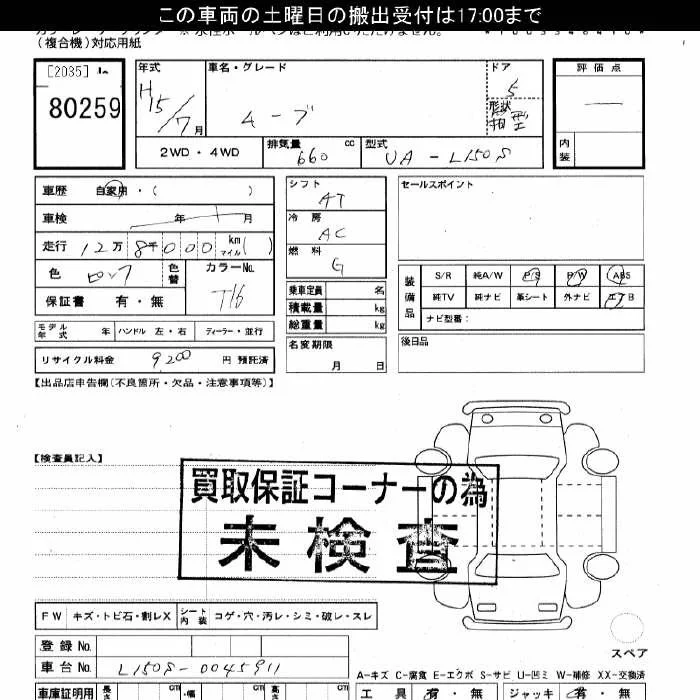 この車両の土曜日の搬出受付は17:00まで
(複合機)対応用紙
[2035]
80259
年式
H15/7月
車名・グレード
ムーブ
ドア
5
形状
箱型
評価点
内装
2WD・4WD
排気量
660 cc
型式
UA-L150S
車歴 自家用・( )
車検 年 月
走行 12万8千000 km マイル ( )
色
色替
カラーNo.
T16
保証書 有・無
モデル年式 年
ハンドル 左・右
ディーラー・並行
リサイクル料金 9,200 円 預託済
シフト
AT
冷房
AC
燃料
G
乗車定員 名
積載量 kg
総重量 kg
名変期限
月 日
セールスポイント
装備品
S/R 純A/W P/S P/W ABS
純TV 純ナビ 革シート 外ナビ エアB
ナビ型番:
後日品
【出品店申告欄(不良箇所・欠品・注意事項等)】
【検査員記入】
買取保証コーナーの為
未検査
FW キズ・トビ石・割レX
シート内装 コゲ・穴・汚レ・シミ・破レ・スレ
スペア
登録No.
車台No. L150S-0045911
A-キズ C-腐食 E-エクボ S-サビ U-凹ミ W-補修 XX-交換済
車庫証明用 長さ cm 幅 cm 高さ cm
工具 有・無 ジャッキ 有・無